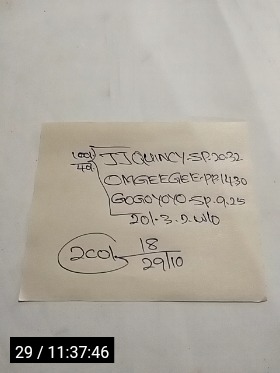 100/ JJQUINCY-SP.20.32
49 OMGEEGEE-PP.14.30
GOGOYOYO-SP.9.25
20/-3.2 W/O
200/- 18
29/10
29 / 11:37:46